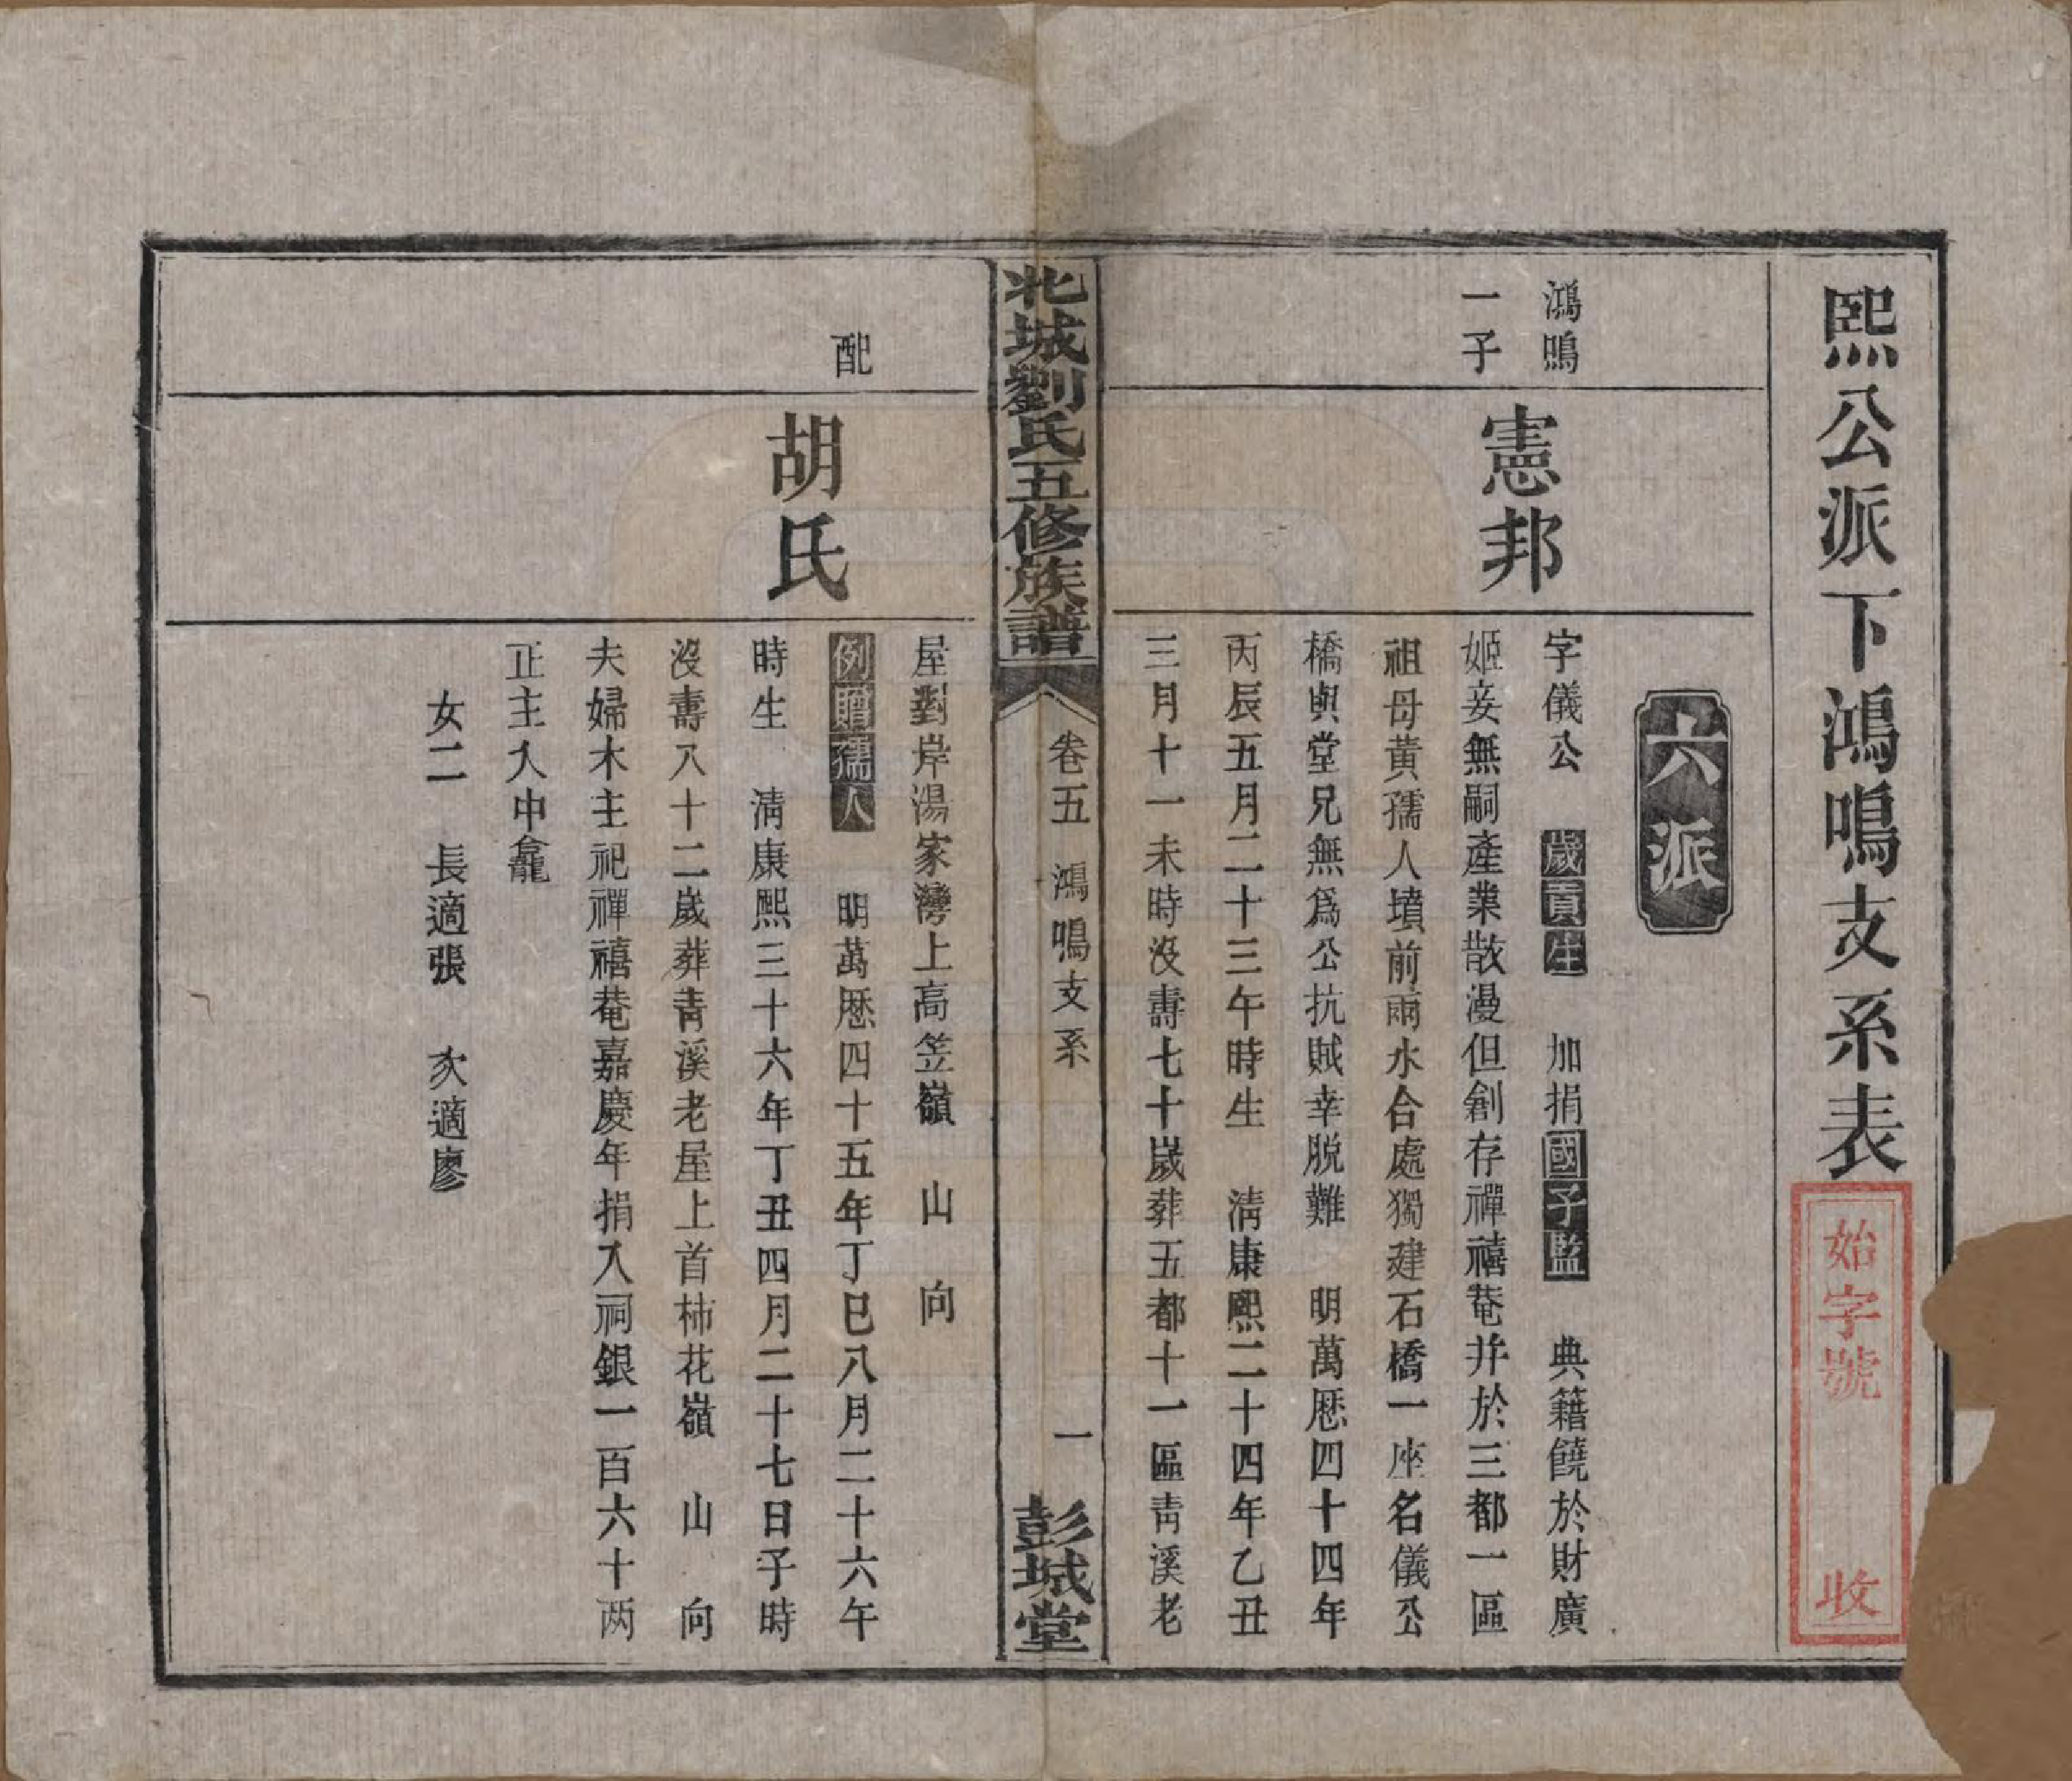 熙公派下鴻鳴支系表
始字號 收
六派
鴻鳴
一子
憲邦
字儀公 歲貢生 加捐國子監 典籍饒於財廣
姬妾無嗣產業散漫但創存禪禧菴并於三都一區
祖母黃孺人墳前兩水合處獨建石橋一座名儀公
橋與堂兄無爲公抗賊幸脫難 明萬厯四十四年
丙辰五月二十三午時生 清康熙二十四年乙丑
三月十一未時沒壽七十歲葬五都十一區靑溪老
北城劉氏五修族譜
卷五 鴻鳴支系
一
彭城堂
屋對岸湯家灣上高笠嶺 山 向
配
胡氏
例贈孺人 明萬厯四十五年丁巳八月二十六午
時生 清康熙三十六年丁丑四月二十七日子時
沒壽八十二歲葬青溪老屋上首柿花嶺 山 向
夫婦木主祀禪禧菴嘉慶年捐入祠銀一百六十两
正主入中龕
女二 長適張 次適廖